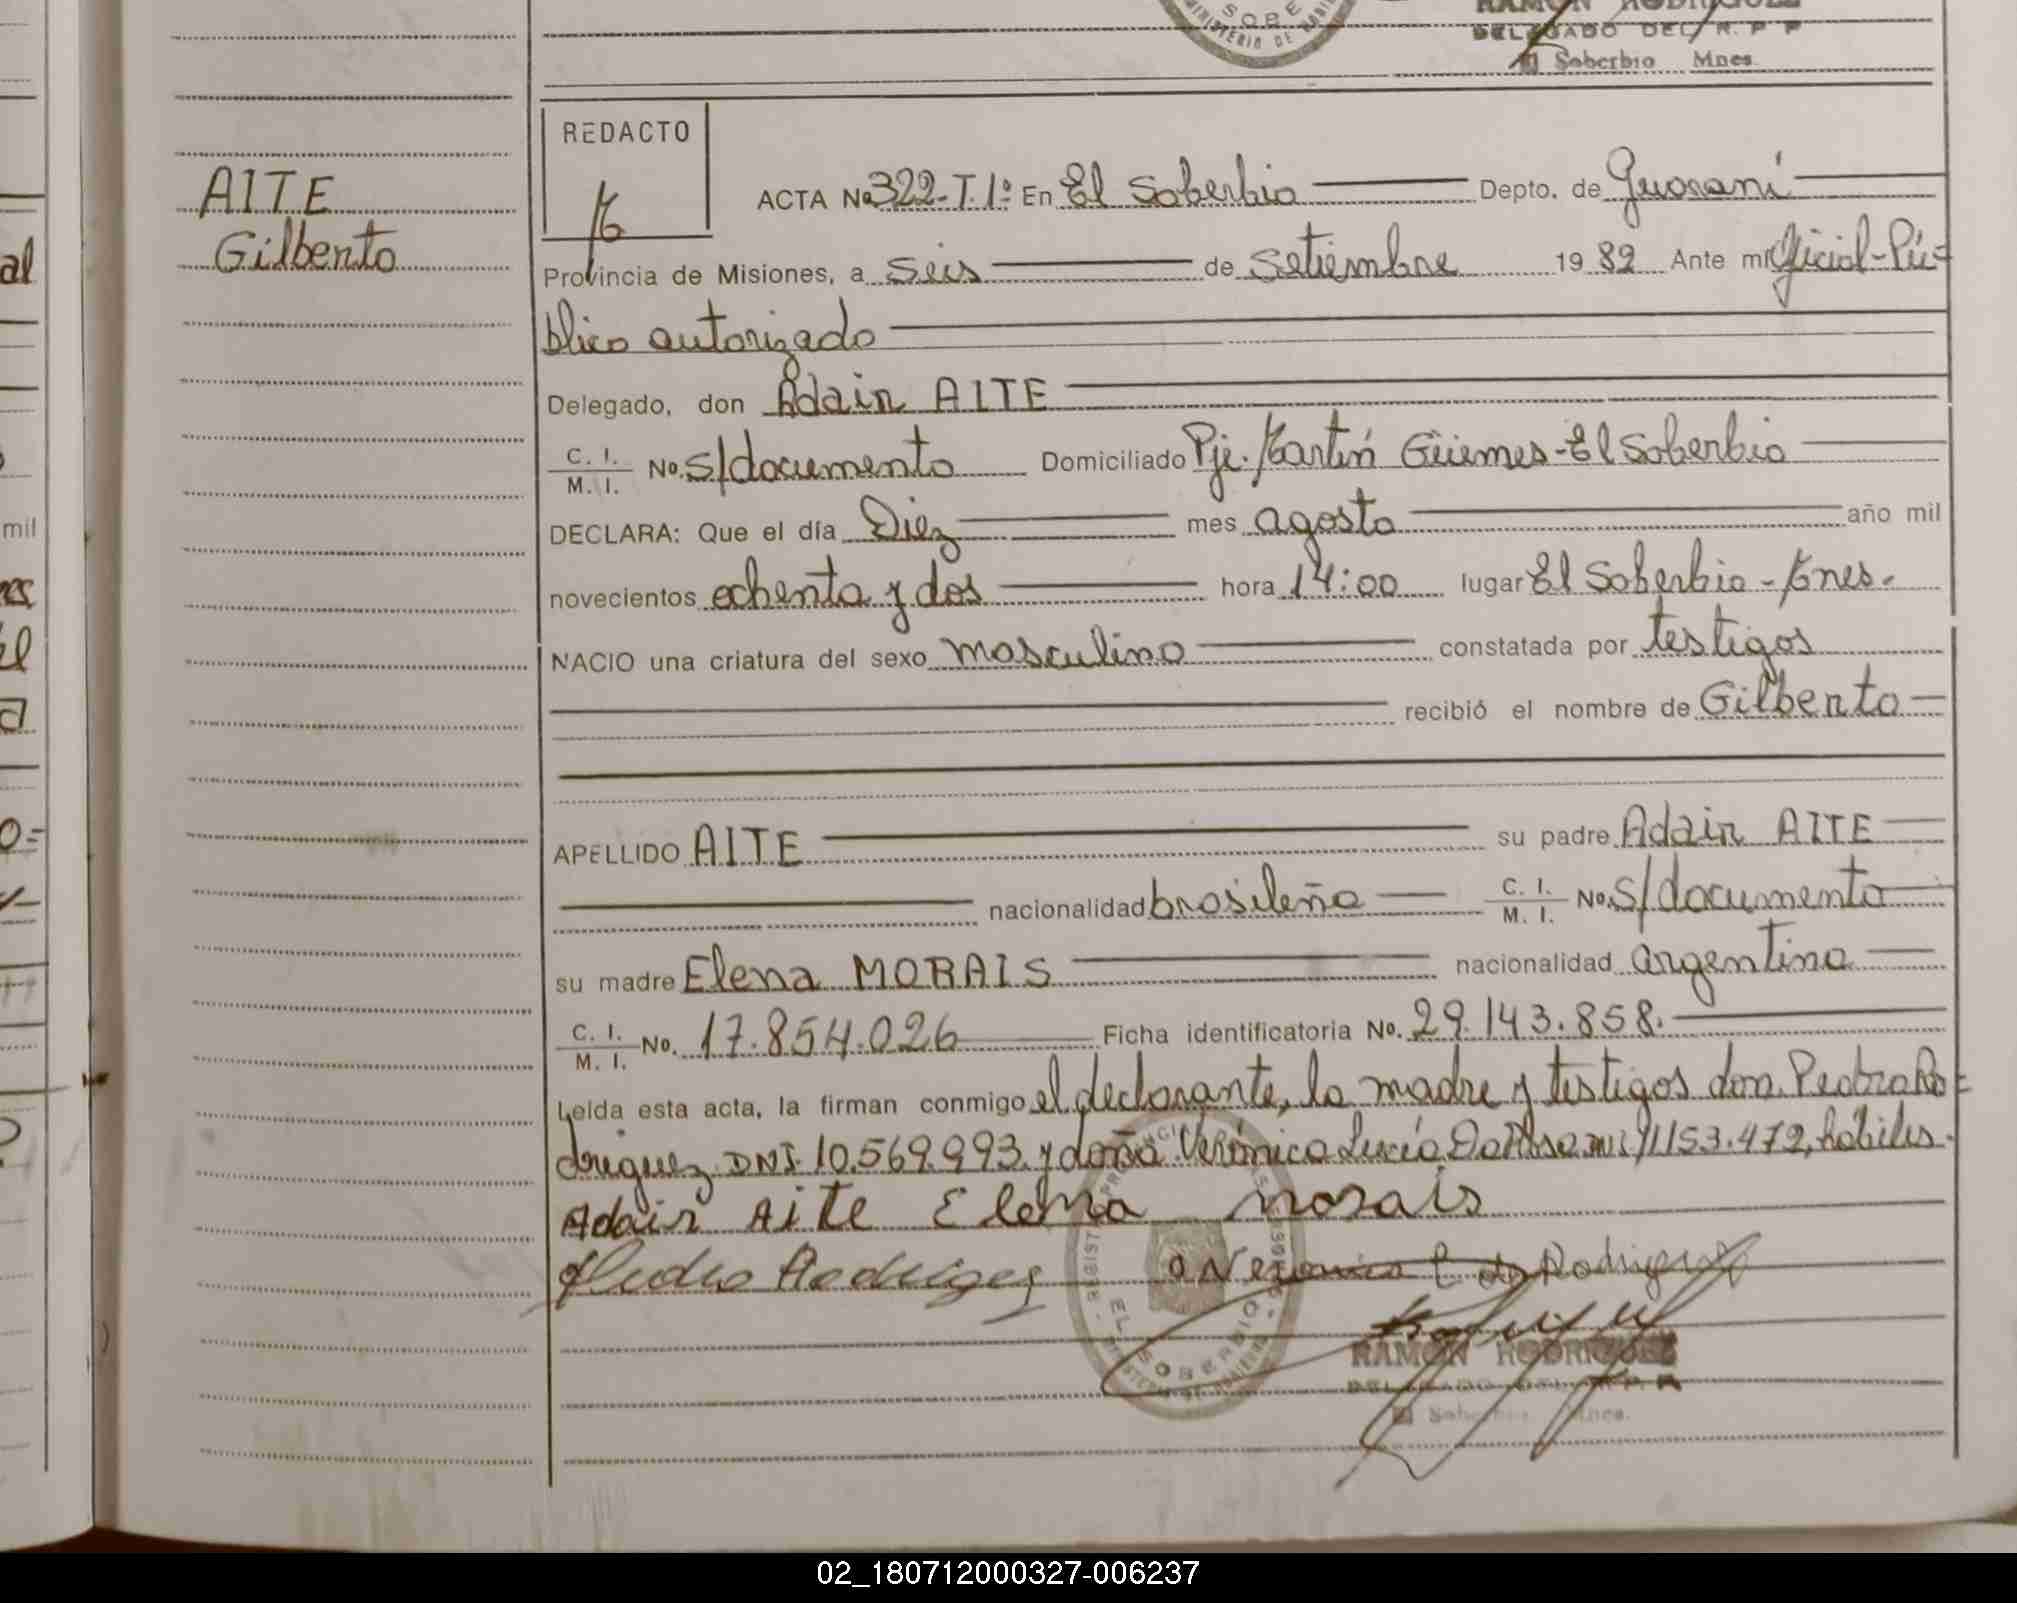 SOBE
MINISTERIO DE
RAMON RODRIGUEZ
DELEGADO DEL R. P P
El Soberbio Mnes.
REDACTO
AITE
Gilberto
ACTA No 322-T.1º En El Soberbio Depto. de Guaraní
Provincia de Misiones, a seis de Setiembre 19 82 Ante mi Oficial-Pú=
blico autorizado
Delegado, don Adair AITE
C. I. / M. I. No. s/documento Domiciliado Pje. Martín Güemes-El Soberbio
DECLARA: Que el día Diez mes agosto año mil
novecientos ochenta y dos hora 14:00 lugar El Soberbio-Mnes.
NACIO una criatura del sexo masculino constatada por testigos
recibió el nombre de Gilberto
APELLIDO AITE su padre Adair AITE
nacionalidad brasileña C. I. / M. I. No. s/documento
su madre Elena MORAIS nacionalidad argentina
C. I. / M. I. No. 17.854.026 Ficha identificatoria No. 29.143.858.
Leída esta acta, la firman conmigo el declarante, la madre y testigos don Pedro Ro=
driguez DNI. 10.569.993 y doña Verónica Lucía habiles.
Adair Aite Elena morais
Pedro Rodriguez Rodriguez
EL SOBERBIO
RAMON RODRIGUEZ
DELEGADO DEL R. P. P.
El Soberbio Mnes.
al
mil
02_180712000327-006237